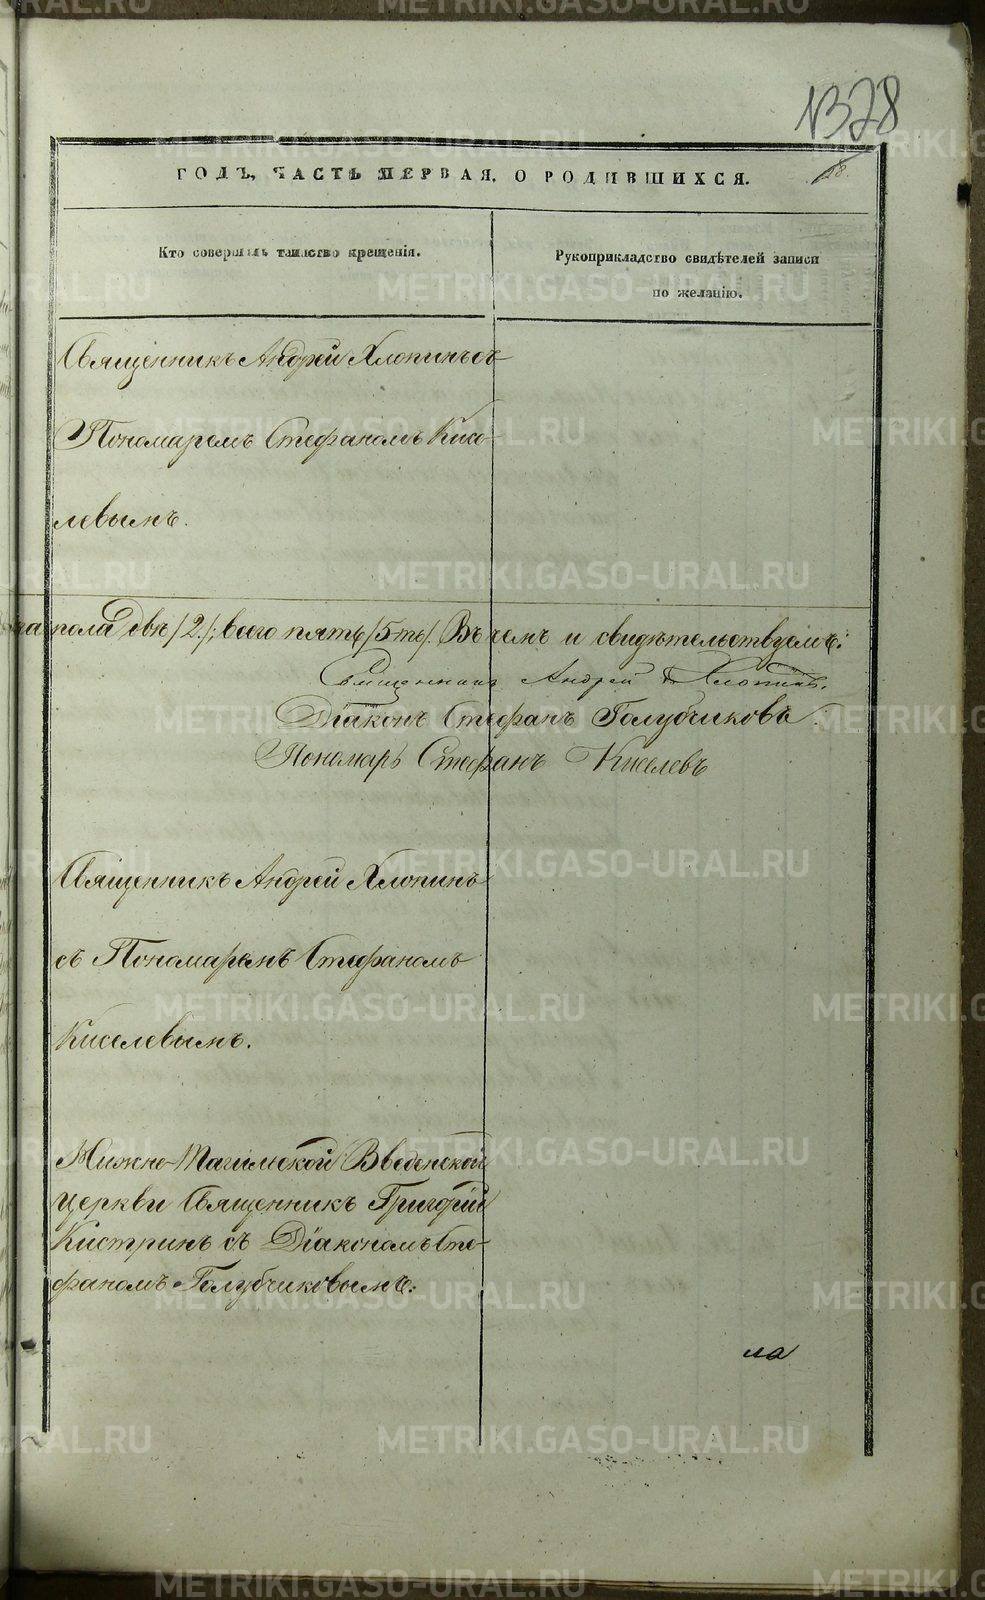 1328
ГОДЪ, ЧАСТЬ ПЕРВАЯ, О РОДИВШИХСЯ.
Кто совершалъ таинство крещенія.
Рукоприкладство свидѣтелей записи
по желанію.
Священникъ Андрей Хлопинъ съ
Пономаремъ Стефаномъ Кисе-
левымъ.
пола двѣ /2./; всего пять /5-ть/. Въ чемъ и свидѣтельствуемъ:
Священникъ Андрей Хлопинъ.
Діаконъ Стефанъ Голубчиковъ.
Пономарь Стефанъ Киселевъ
Священникъ Андрей Хлопинъ
съ Пономаремъ Стефаномъ
Киселевымъ.
Нижне-Тагильской Введенской
церкви Священникъ Григорій
Кистринъ съ Діакономъ Сте-
фаномъ Голубчиковымъ.
ла
METRIKI.GASO-URAL.RU